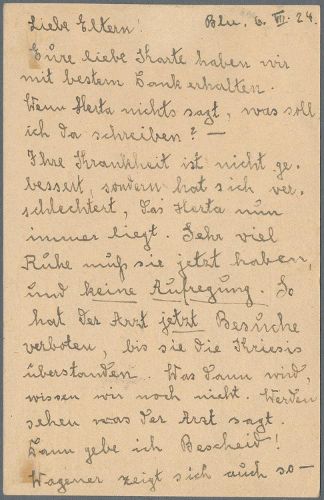 Liebe Eltern! Bln. 6. VII. 24.
Eure liebe Karte haben wir
mit bestem Dank erhalten.
Wenn Herta nichts sagt, was soll
ich da schreiben? —
Ihre Krankheit ist nicht ge-
bessert, sondern hat sich ver-
schlechtert, das Herta nun
immer liegt. Sehr viel
Ruhe muß sie jetzt haben,
und keine Aufregung. So
hat der Arzt jetzt Besuche
verboten, bis sie die Kriesis
überstanden. Was dann wird,
wissen wir noch nicht. Werden
sehen was der Arzt sagt.
Dann gebe ich Bescheid!
Wagener zeigt sich auch so —